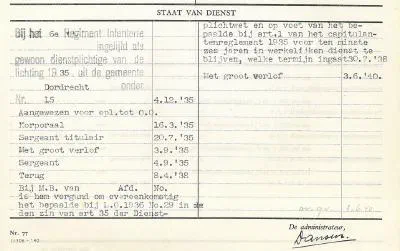 STAAT VAN DIENST
Bij het 6e Regiment Infanterie
ingelijfd als
gewoon dienstplichtige van de
lichting 1935. uit de gemeente
Dordrecht onder
Nr. 15 4.12.'35
Aangewezen voor opl.tot O.O.
Korporaal 16.3.'35
Sergeant titulair 20.7.'35
Met groot verlof 3.9.'35
Sergeant 4.9.'35
Terug 8.4.'38
Bij M.B. van Afd. No.
is hem vergund om overeenkomstig
het bepaalde bij L.O.1936 No.29 in de
den zin van art 35 der Dienst-
plichtwet en op voet van het be-
paalde bij art.1 van het capitulan-
tenreglement 1935 voor ten minste
zes jaren in werkelijken dienst te
blijven, welke termijn ingaat 30.7.'38
Met groot verlof 3.6.'40.
De administrateur,
Nr. 77